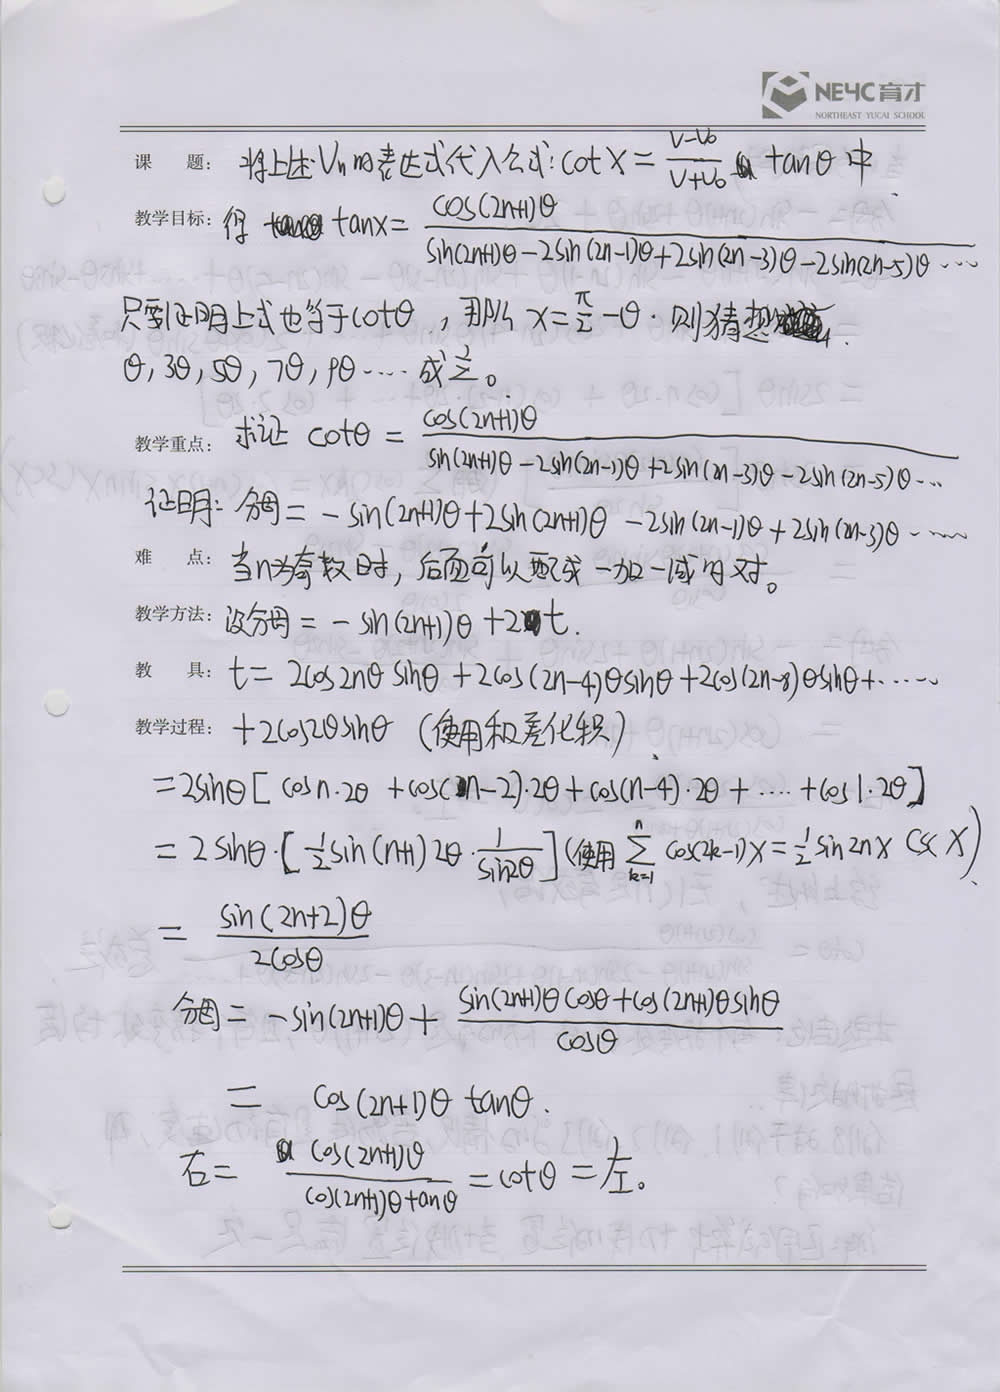 NEYC育才
NORTHEAST YUCAI SCHOOL
课 题: 将上述Vn的表达式代入公式: cotx = (V-V0)/(V+V0) tanθ 中
教学目标: 得 tanx = cos(2n+1)θ / (sin(2n+1)θ - 2sin(2n-1)θ + 2sin(2n-3)θ - 2sin(2n-5)θ ……)
只需证明上式也等于cotθ, 那么 x = π/2 - θ. 则猜想
θ, 3θ, 5θ, 7θ, 9θ …… 成立。
教学重点: 求证 cotθ = cos(2n+1)θ / (sin(2n+1)θ - 2sin(2n-1)θ + 2sin(2n-3)θ - 2sin(2n-5)θ ……)
证明: 分母 = -sin(2n+1)θ + 2sin(2n+1)θ - 2sin(2n-1)θ + 2sin(2n-3)θ ……
难 点: 当n为奇数时, 后面可以配成一加一减的对。
教学方法: 设分母 = -sin(2n+1)θ + 2t.
教 具: t = 2cos2nθ sinθ + 2cos(2n-4)θsinθ + 2cos(2n-8)θsinθ + ……
教学过程: + 2cos2θsinθ (使用和差化积)
= 2sinθ [ cosn·2θ + cos(n-2)·2θ + cos(n-4)·2θ + …… + cos1·2θ ]
= 2sinθ·[ 1/2 sin(n+1)2θ · 1/sin2θ ] (使用 ∑_{k=1}^{n} cos(2k-1)x = 1/2 sin2nx cscx)
= sin(2n+2)θ / 2cosθ
分母 = -sin(2n+1)θ + (sin(2n+1)θcosθ + cos(2n+1)θsinθ) / cosθ
= cos(2n+1)θ tanθ.
右 = cos(2n+1)θ / cos(2n+1)θtanθ = cotθ = 左。